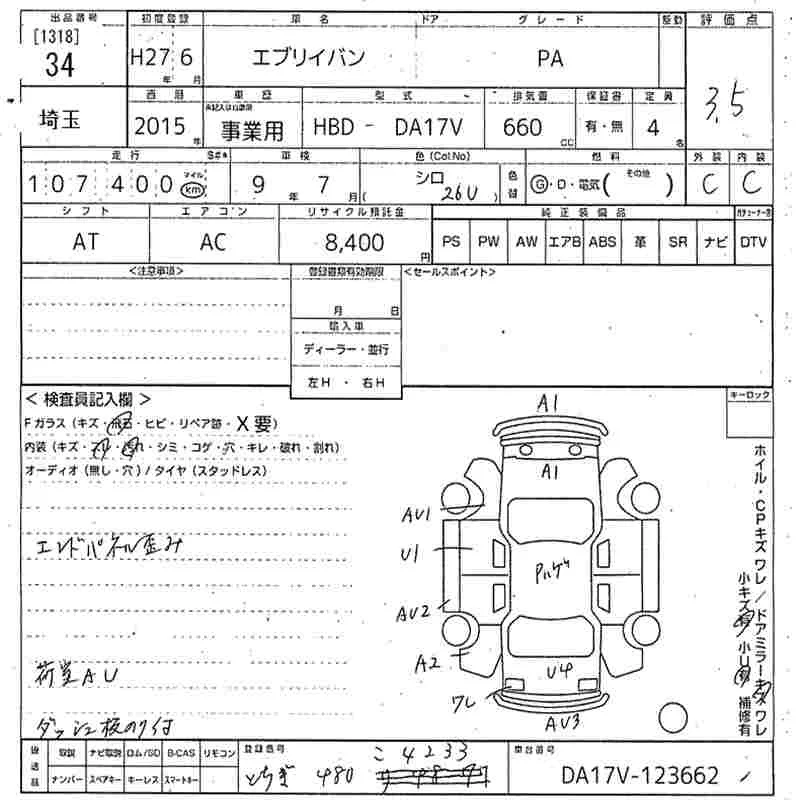 出品番号 初度登録 車名 ドア グレード 駆動 評価点
[1318] 34 H27 6 年 月 エブリイバン PA 3.5
埼玉
西暦 車歴 未記入は自家用 型式 排気量 保証書 定員
2015 年 事業用 HBD - DA17V 660 CC 有・無 4 名
走行 S#* 車検 色(Col No) 燃料 外装 内装
107400 マイル km 9年 7月 ( シロ 26U ) 色替 G・D・電気( その他 ) C C
シフト エアコン リサイクル預託金 純正装備品
AT AC 8,400 円 PS PW AW エアB ABS 革 SR ナビ DTV
<注意事項> 登録書類有効期限 <セールスポイント>
月 日
輸入車
ディーラー・並行
左H ・ 右H
<検査員記入欄> キーロック
Fガラス (キズ・飛石・ヒビ・リペア跡・X要)
内装 (キズ・スリ・汚れ・シミ・コゲ・穴・キレ・破れ・割れ)
オーディオ (無し・穴) / タイヤ (スタッドレス)
エンドパネル歪み
荷室AU
ダッシュ板のり付
A1
A1
AU1
U1
AU2
A2
U4
ワレ
AU3
ホイル・CPキズ ワレ / ドアミラーキズ ワレ
小キズ有 小U有 補修有
後送品 取説 ナビ取説 ロム/SD B-CAS リモコン 登録番号 車台番号
ナンバー スペアキー キーレス スマートキー とちぎ 480 こ 4233 DA17V-123662